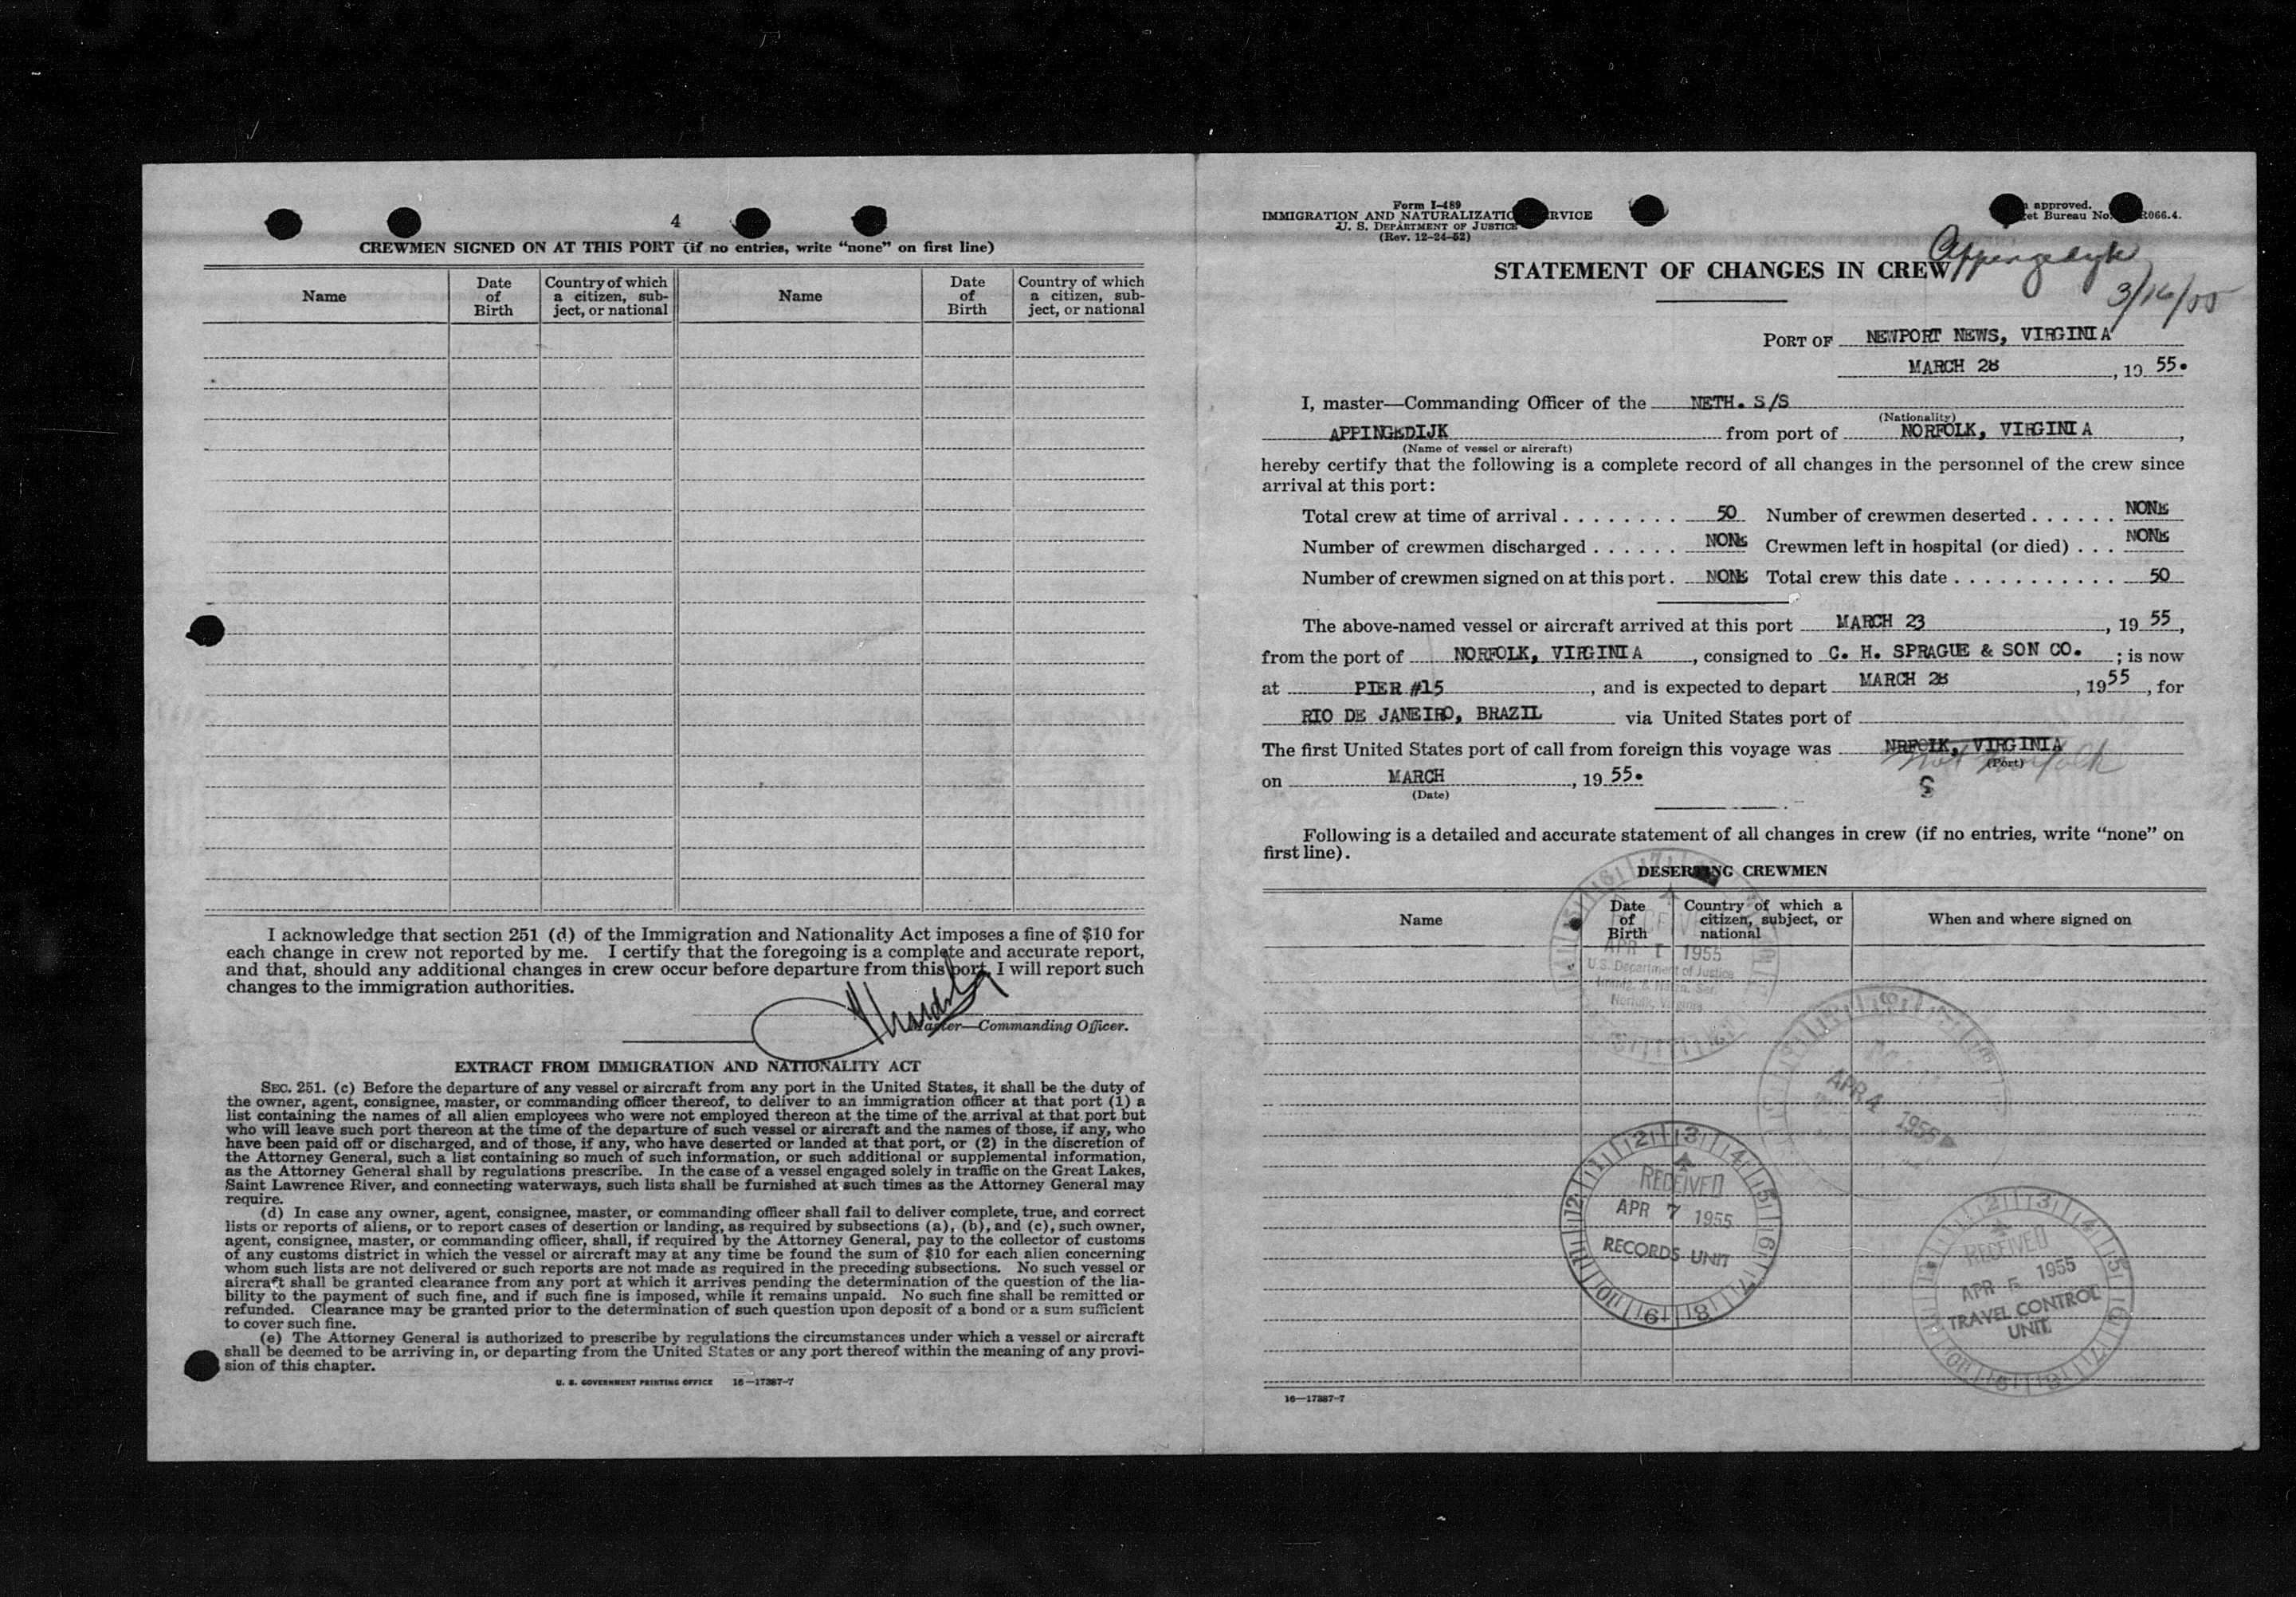 4
CREWMEN SIGNED ON AT THIS PORT (if no entries, write “none” on first line)
Name
Date of Birth
Country of which a citizen, sub-ject, or national
Name
Date of Birth
Country of which a citizen, sub-ject, or national
I acknowledge that section 251 (d) of the Immigration and Nationality Act imposes a fine of $10 for
each change in crew not reported by me. I certify that the foregoing is a complete and accurate report,
and that, should any additional changes in crew occur before departure from this port, I will report such
changes to the immigration authorities.
Master—Commanding Officer.
EXTRACT FROM IMMIGRATION AND NATIONALITY ACT
SEC. 251. (c) Before the departure of any vessel or aircraft from any port in the United States, it shall be the duty of
the owner, agent, consignee, master, or commanding officer thereof, to deliver to an immigration officer at that port (1) a
list containing the names of all alien employees who were not employed thereon at the time of the arrival at that port but
who will leave such port thereon at the time of the departure of such vessel or aircraft and the names of those, if any, who
have been paid off or discharged, and of those, if any, who have deserted or landed at that port, or (2) in the discretion of
the Attorney General, such a list containing so much of such information, or such additional or supplemental information,
as the Attorney General shall by regulations prescribe. In the case of a vessel engaged solely in traffic on the Great Lakes,
Saint Lawrence River, and connecting waterways, such lists shall be furnished at such times as the Attorney General may
require.
(d) In case any owner, agent, consignee, master, or commanding officer shall fail to deliver complete, true, and correct
lists or reports of aliens, or to report cases of desertion or landing, as required by subsections (a), (b), and (c), such owner,
agent, consignee, master, or commanding officer, shall, if required by the Attorney General, pay to the collector of customs
of any customs district in which the vessel or aircraft may at any time be found the sum of $10 for each alien concerning
whom such lists are not delivered or such reports are not made as required in the preceding subsections. No such vessel or
aircraft shall be granted clearance from any port at which it arrives pending the determination of the question of the lia-
bility to the payment of such fine, and if such fine is imposed, while it remains unpaid. No such fine shall be remitted or
refunded. Clearance may be granted prior to the determination of such question upon deposit of a bond or a sum sufficient
to cover such fine.
(e) The Attorney General is authorized to prescribe by regulations the circumstances under which a vessel or aircraft
shall be deemed to be arriving in, or departing from the United States or any port thereof within the meaning of any provi-
sion of this chapter.
U. S. GOVERNMENT PRINTING OFFICE 16—17387-7
Form I-489
IMMIGRATION AND NATURALIZATIO RVICE
U. S. DEPARTMENT OF JUSTICE
(Rev. 12-24-52)
approved.
et Bureau No. R066.4.
Appingedyk
3/16/55
STATEMENT OF CHANGES IN CREW
PORT OF NEWPORT NEWS, VIRGINIA
MARCH 28, 19 55.
I, master—Commanding Officer of the NETH. S/S
(Nationality)
APPINGEDIJK from port of NORFOLK, VIRGINIA,
(Name of vessel or aircraft)
hereby certify that the following is a complete record of all changes in the personnel of the crew since
arrival at this port:
Total crew at time of arrival . . . . . . . . 50 Number of crewmen deserted . . . . . . NONE
Number of crewmen discharged . . . . . . NONE Crewmen left in hospital (or died) . . . NONE
Number of crewmen signed on at this port . NONE Total crew this date . . . . . . . . . . . 50
The above-named vessel or aircraft arrived at this port MARCH 23, 19 55,
from the port of NORFOLK, VIRGINIA, consigned to C. H. SPRAGUE & SON CO. ; is now
at PIER #15, and is expected to depart MARCH 28, 19 55, for
RIO DE JANEIRO, BRAZIL via United States port of
The first United States port of call from foreign this voyage was NRFOLK, VIRGINIA
not Norfolk
(Port)
on MARCH, 19 55.
(Date)
Following is a detailed and accurate statement of all changes in crew (if no entries, write “none” on
first line).
DESERTING CREWMEN
Name
Date of Birth
Country of which a citizen, subject, or national
When and where signed on
RECEIVED
APR 1 1955
U.S. Department of Justice
Immig. & Natn. Ser.
Norfolk, Virginia
APR 4 1955
RECEIVED
APR 7 1955
RECORDS UNIT
RECEIVED
APR 5 1955
TRAVEL CONTROL
UNIT
16—17387-7